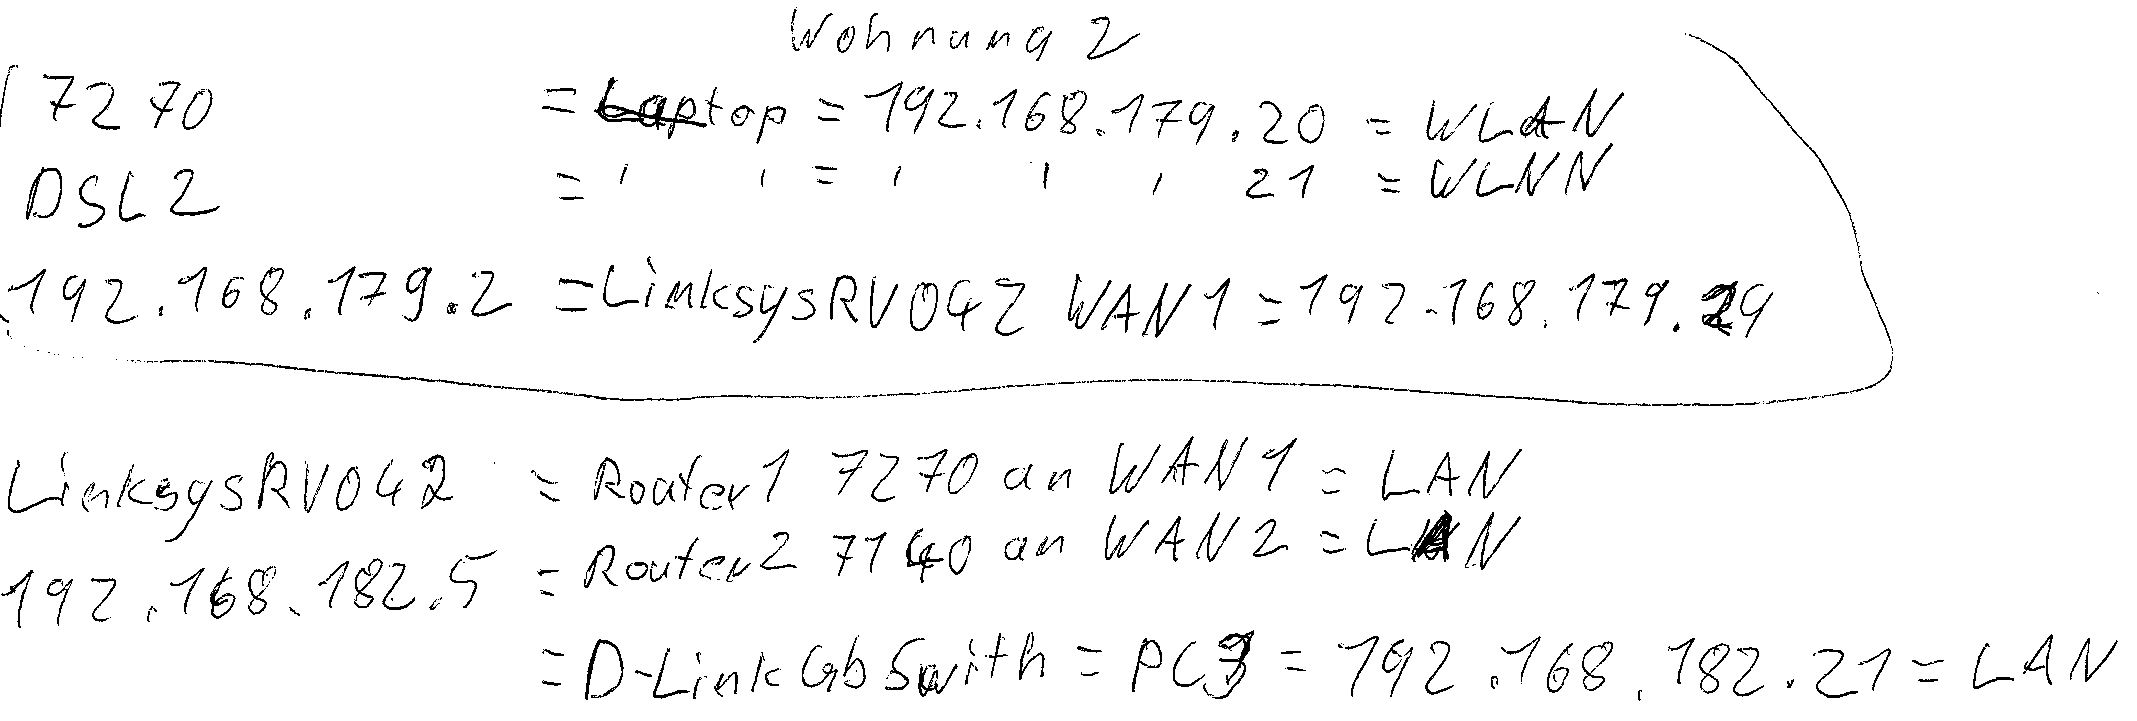 Wohnung 2
7270 = Laptop = 192.168.179.20 = WLAN
DSL2 = ' ' = ' ' ' 21 = WLNN
192.168.179.2 = LinksysRV042 WAN1 = 192.168.179.24
LinksysRV042 = Router1 7270 an WAN1 = LAN
= Router2 7140 an WAN2 = LAN
192.168.182.5
= D-LinkGbSwith = PC3 = 192.168.182.21 = LAN